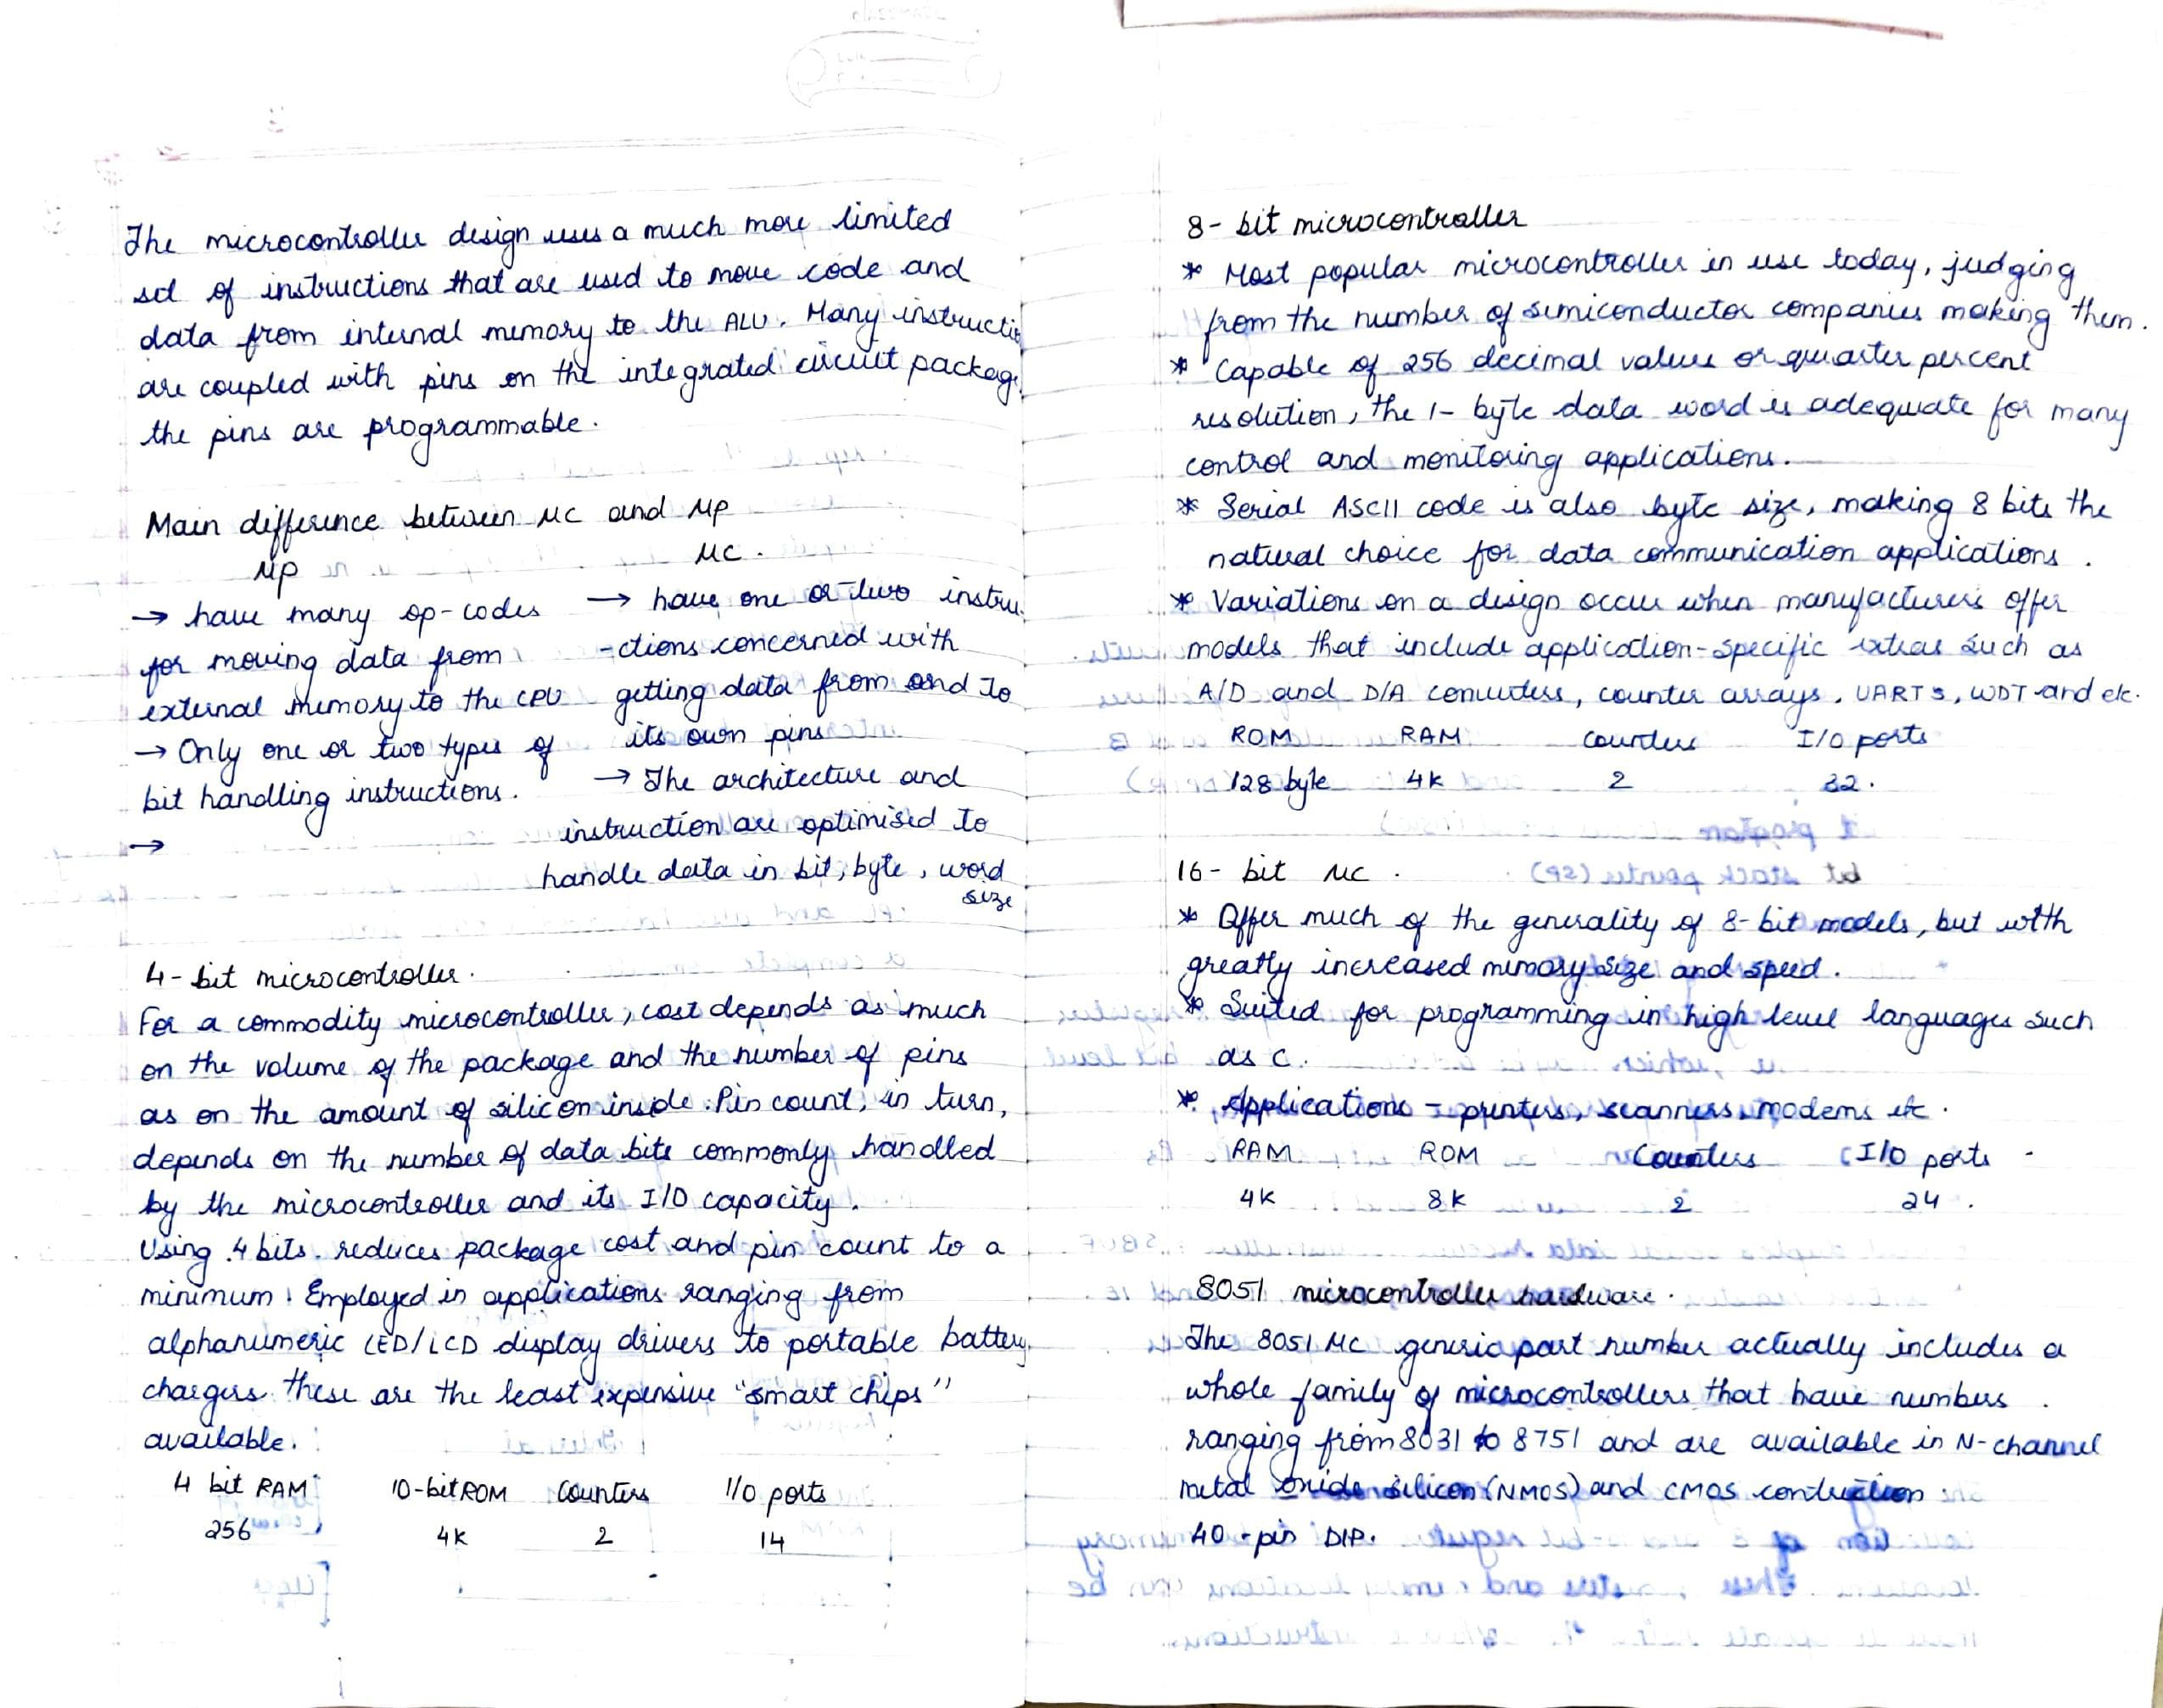 The microcontroller design uses a much more limited
set of instructions that are used to move code and
data from internal memory to the ALU. Many instructio
are coupled with pins on the integrated circuit package
the pins are programmable.
Main difference between μc and μp
μp μc.
→ have many op-codes
for moving data from
external memory to the CPU
→ Only one or two types of
bit handling instructions.
→
→ have one or two instru
-ctions concerned with
getting data from and to
its own pins
→ The architecture and
instruction are optimised to
handle data in bit, byte, word
size
4-bit microcontroller.
For a commodity microcontroller, cost depends as much
on the volume of the package and the number of pins
as on the amount of silicon inside. Pin count, in turn,
depends on the number of data bits commonly handled
by the microcontroller and its I/O capacity.
Using 4 bits reduces package cost and pin count to a
minimum. Employed in applications ranging from
alphanumeric LED/LCD display drivers to portable battery
chargers these are the least expensive "smart chips"
available.
4 bit RAM 10-bit ROM Counters I/O ports
256 4K 2 14
8-bit microcontroller
* Most popular microcontroller in use today, judging
from the number of semiconductor companies making them.
* Capable of 256 decimal values or quarter percent
resolution, the 1-byte data word is adequate for many
control and monitoring applications.
* Serial ASCII code is also byte size, making 8 bits the
natural choice for data communication applications.
* Variations on a design occur when manufacturers offer
models that include application-specific extras such as
A/D and D/A converters, counter arrays, UARTs, WDT and etc.
ROM RAM counters I/O ports
128 byte 4K 2 32.
16-bit μc.
* Offer much of the generality of 8-bit models, but with
greatly increased memory size and speed.
* Suited for programming in high level languages such
as C.
* Applications - printers, scanners, modems etc.
RAM ROM Counters I/O ports
4K 8K 2 24.
8051 microcontroller hardware.
The 8051 μc generic part number actually includes a
whole family of microcontrollers that have numbers
ranging from 8031 to 8751 and are available in N-channel
metal oxide silicon (NMOS) and CMOS
40-pin DIP.